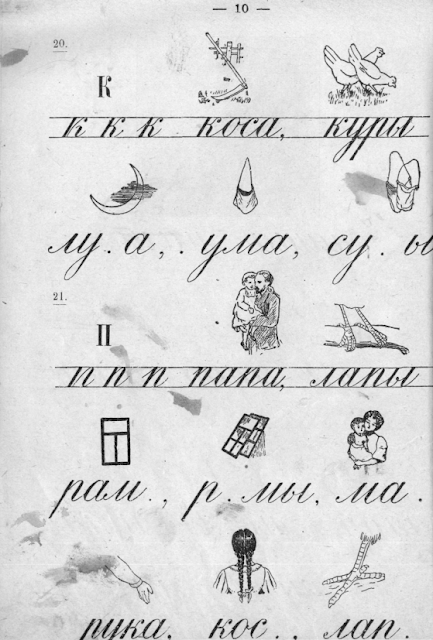 — 10 —
20.
К
к к к коса, куры
лу.а, .ума, су.ы
21.
П
п п п папа, лапы
рам., р.мы, ма.
рука, кос.., лап.